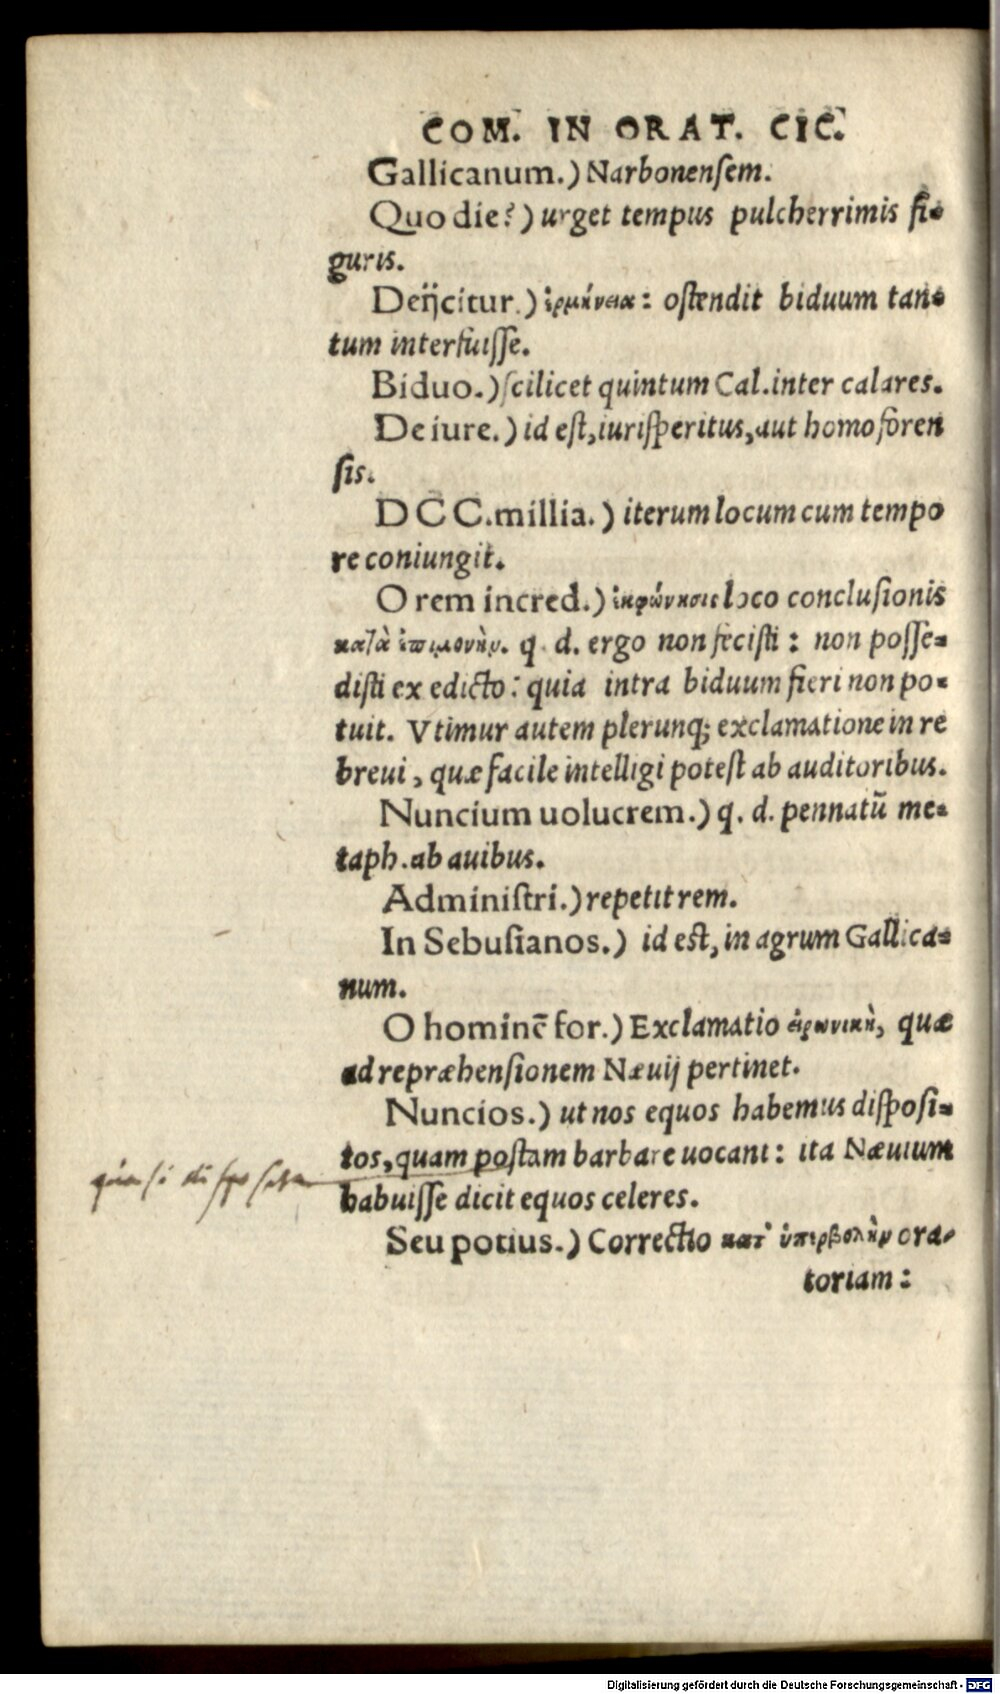 COM. IN ORAT. CIC.
Gallicanum.) Narbonensem.
Quo die?) urget tempus pulcherrimis fi-
guris.
Deijcitur.) ἑρμήνεια: ostendit biduum tan-
tum interfuisse.
Biduo.) scilicet quintum Cal. inter calares.
De iure.) id est, iurisperitus, aut homo foren
sis.
DCC. millia.) iterum locum cum tempo
re coniungit.
O rem incred.) ἐκφώνησις loco conclusionis
κατὰ ἐπιμονὴν. q. d. ergo non fecisti: non posse-
disti ex edicto: quia intra biduum fieri non po-
tuit. Vtimur autem plerunq; exclamatione in re
breui, quæ facile intelligi potest ab auditoribus.
Nuncium uolucrem.) q. d. pennatũ me-
taph. ab auibus.
Administri.) repetit rem.
In Sebusianos.) id est, in agrum Gallica-
num.
O hominẽ for.) Exclamatio εἰρωνικὴ, quæ
ad repræhensionem Næuij pertinet.
Nuncios.) ut nos equos habemus disposi-
tos, quam postam barbare uocant: ita Næuium
quasi disposita
habuisse dicit equos celeres.
Seu potius.) Correctio κατ' ὑπερβολὴν ora-
toriam:
Digitalisierung gefördert durch die Deutsche Forschungsgemeinschaft - DFG